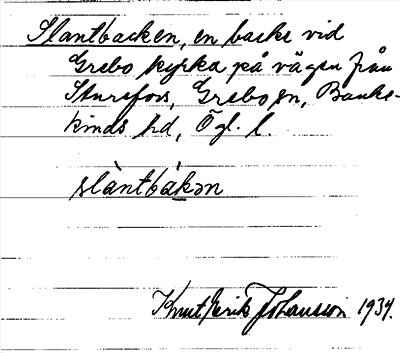 Slantbacken, en backe vid
Grebo kyrka på vägen från
Sturefors, Grebo sn, Banke-
kinds hd, Ög. l.
slàntbákən
Knut Erik Johansson 1934.